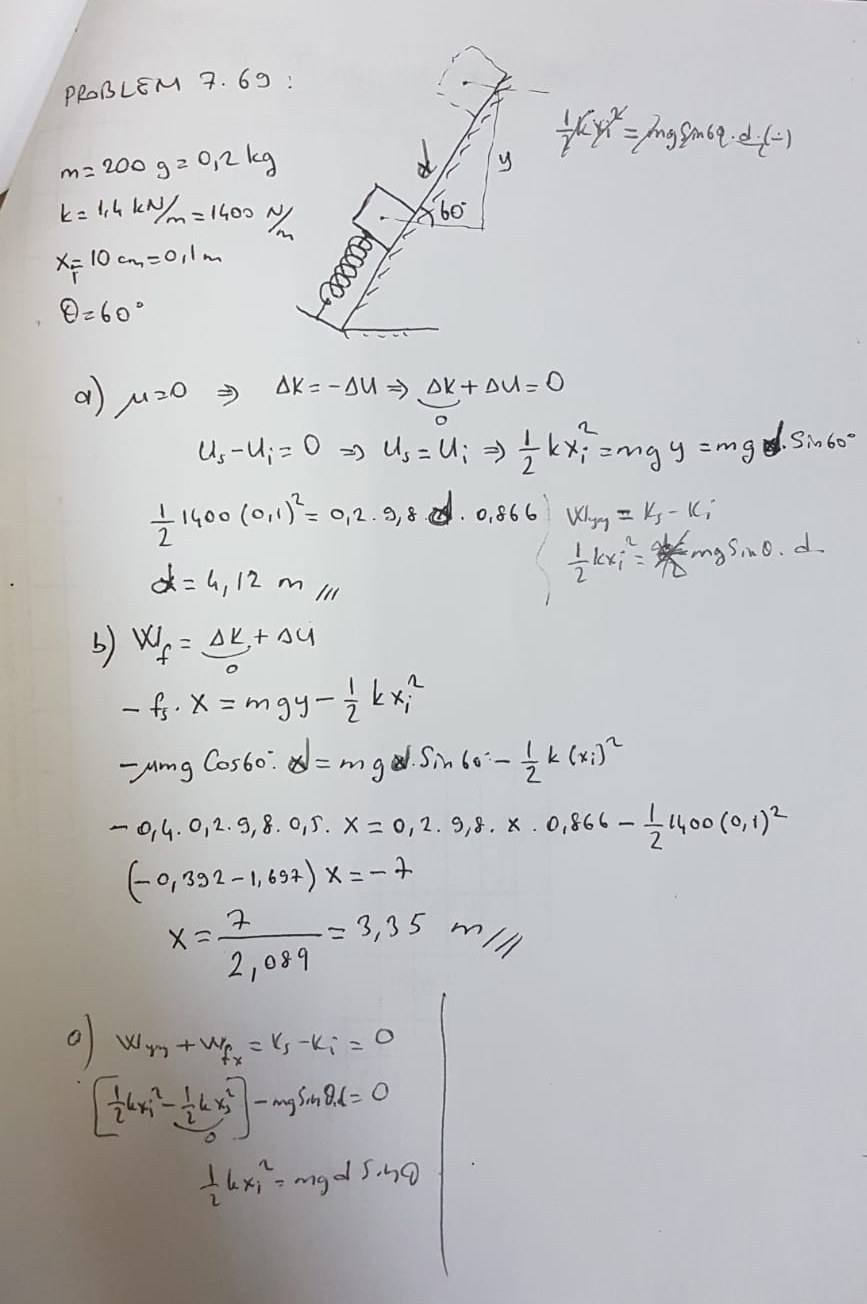 PROBLEM 7.69 :
m = 200 g = 0,2 kg
k = 1,4 kN/m = 1400 N/m
xᵢ = 10 cm = 0,1 m
θ = 60°
d
y
60°
½kxᵢ² = mg Sin60.d.(-)
a) μ=0 ⇒ ΔK = -ΔU ⇒ ΔK + ΔU = 0
0
Uₛ - Uᵢ = 0 ⇒ Uₛ = Uᵢ ⇒ ½ kxᵢ² = mg y = mg d. Sin60°
½ 1400 (0,1)² = 0,2 . 9,8 . d . 0,866
d = 4,12 m ///
W_yay = Kₛ - Kᵢ
½kxᵢ² = mg Sinθ . d
b) W_f = ΔK + ΔU
0
- fₛ . x = mgy - ½ kxᵢ²
-μmg Cos60°. d = mg d. Sin60° - ½ k (xᵢ)²
- 0,4 . 0,2 . 9,8 . 0,5 . x = 0,2 . 9,8 . x . 0,866 - ½ 1400 (0,1)²
(-0,392 - 1,697) x = -7
x = 7/2,089 = 3,35 m ///
a) W_yay + W_fx = Kₛ - Kᵢ = 0
[½kxᵢ² - ½kxₛ²] - mg Sinθ.d = 0
0
½kxᵢ² = mgd Sinθ